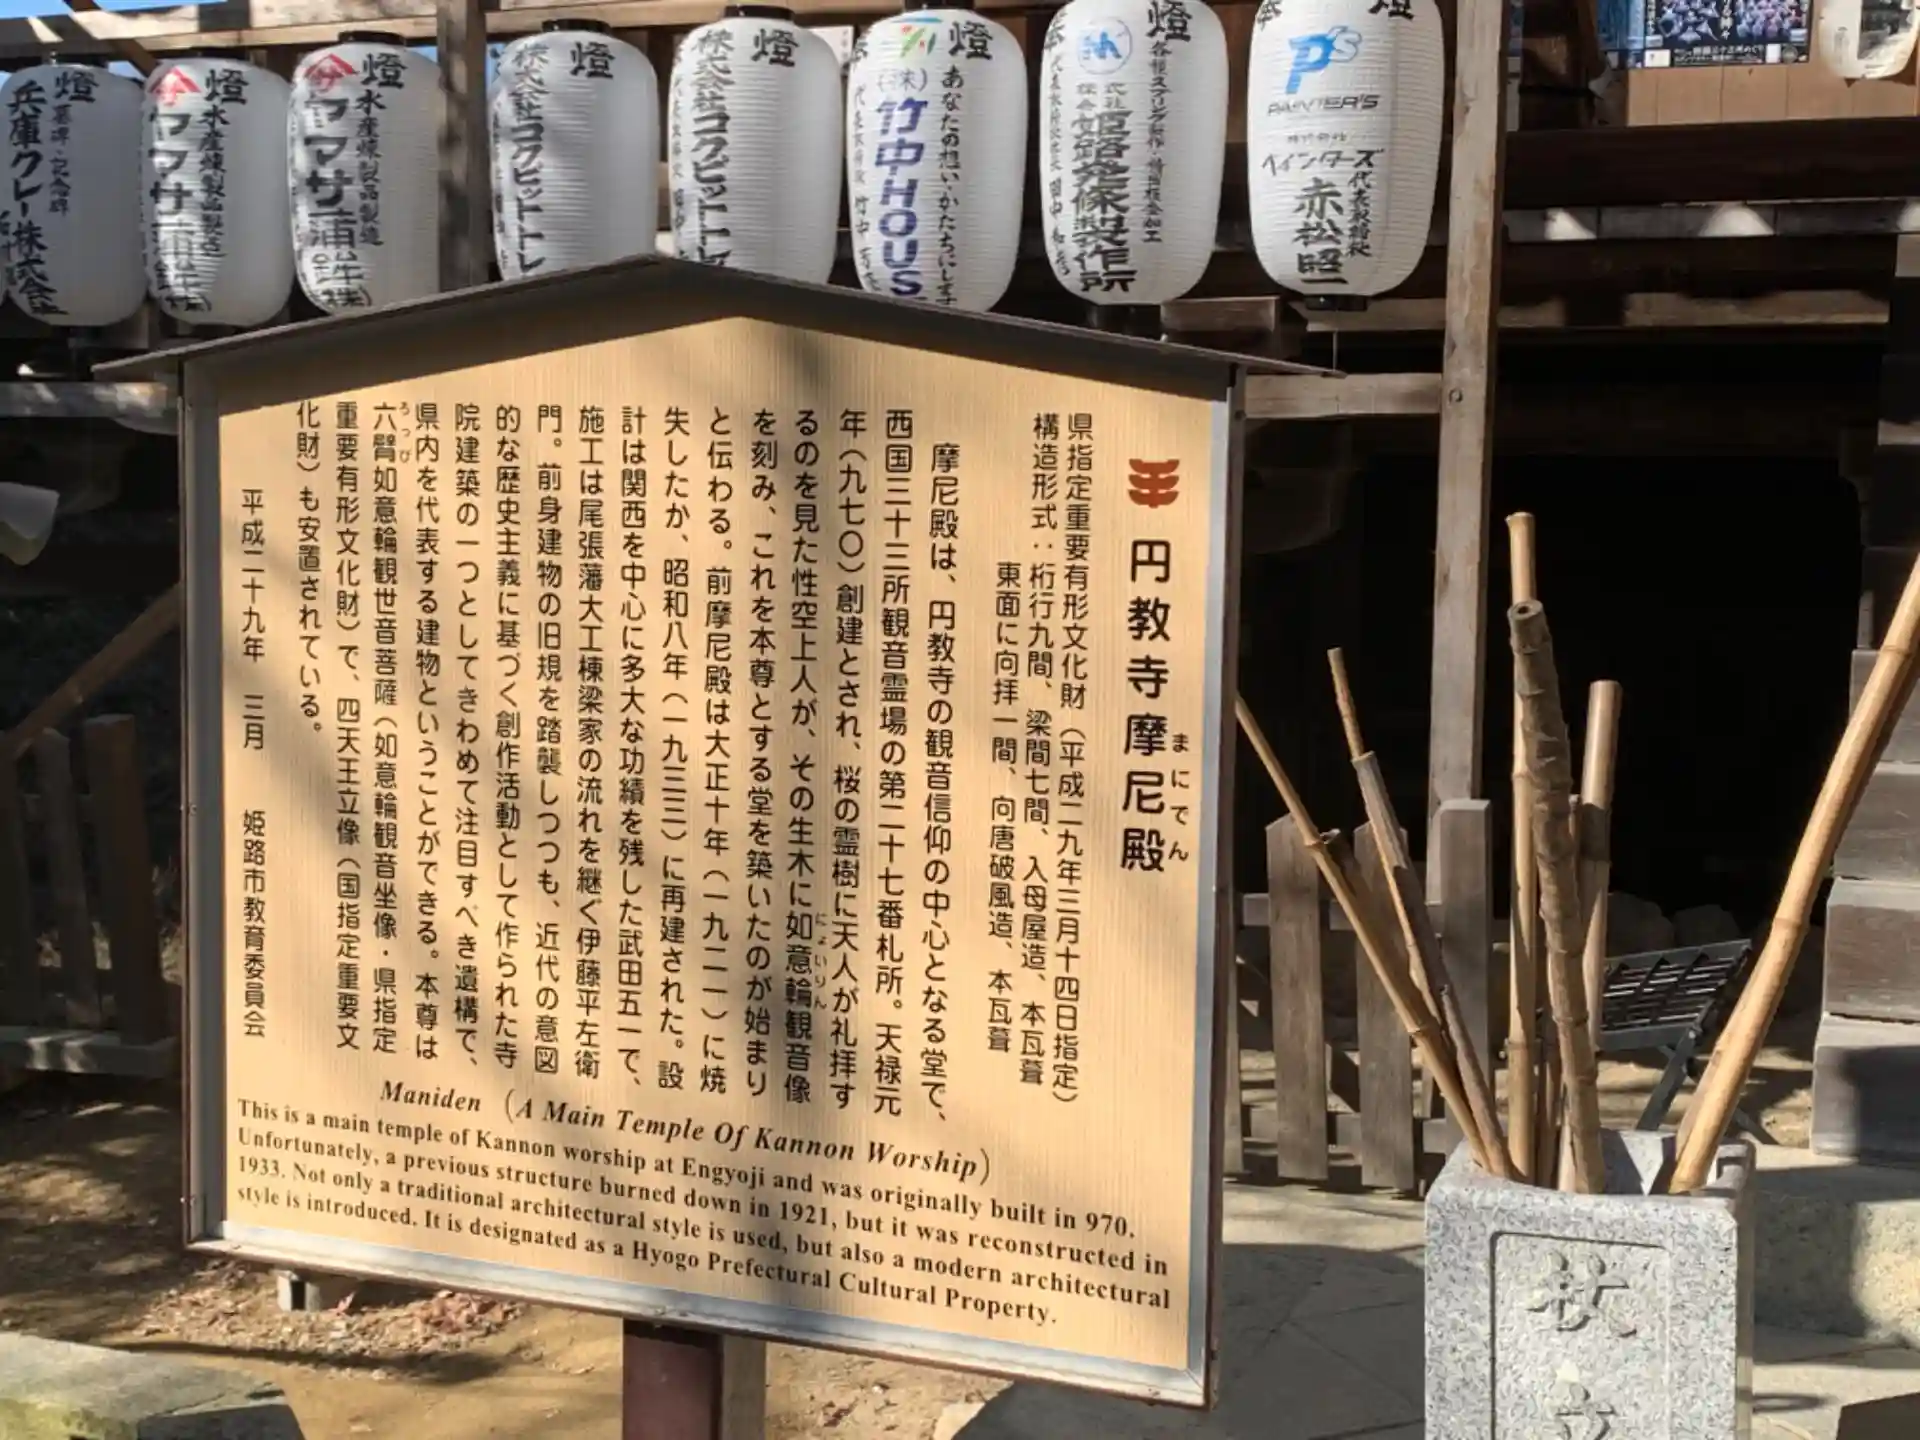 円教寺摩尼殿
まにでん
県指定重要有形文化財（平成二九年三月十四日指定）
構造形式：桁行九間、梁間七間、入母屋造、本瓦葺
東面に向拝一間、向唐破風造、本瓦葺
摩尼殿は、円教寺の観音信仰の中心となる堂で、
西国三十三所観音霊場の第二十七番札所。天禄元
年（九七〇）創建とされ、桜の霊樹に天人が礼拝す
るのを見た性空上人が、その生木に如意輪観音像
にょいりん
を刻み、これを本尊とする堂を築いたのが始まり
と伝わる。前摩尼殿は大正十年（一九二一）に焼
失したか、昭和八年（一九三三）に再建された。設
計は関西を中心に多大な功績を残した武田五一で、
施工は尾張藩大工棟梁家の流れを継ぐ伊藤平左衛
門。前身建物の旧規を踏襲しつつも、近代の意図
的な歴史主義に基づく創作活動として作られた寺
院建築の一つとしてきわめて注目すべき遺構で、
県内を代表する建物ということができる。本尊は
六臂如意輪観世音菩薩（如意輪観音坐像・県指定
ろっぴ
重要有形文化財）で、四天王立像（国指定重要文
化財）も安置されている。
平成二十九年 三月 姫路市教育委員会
Maniden （A Main Temple Of Kannon Worship）
This is a main temple of Kannon worship at Engyoji and was originally built in 970.
Unfortunately, a previous structure burned down in 1921, but it was reconstructed in
1933. Not only a traditional architectural style is used, but also a modern architectural
style is introduced. It is designated as a Hyogo Prefectural Cultural Property.
燈
P's
PAINTER'S
株式会社
ペインターズ
代表取締役
赤松昭一
燈
各種スプリング製作・精密板金加工
株式会社
姫路発條製作所
燈
あなたの想い・かたちにします
(株)竹中HOUS
燈
株式会社コクピットトレ
燈
株式会社コクピットトレ
燈
水産煉製品製造
ヤマサ蒲鉾(株)
燈
水産煉製品製造
ヤマサ蒲鉾(株)
燈
墓碑・記念碑
兵庫クレー株式会社
杖
立